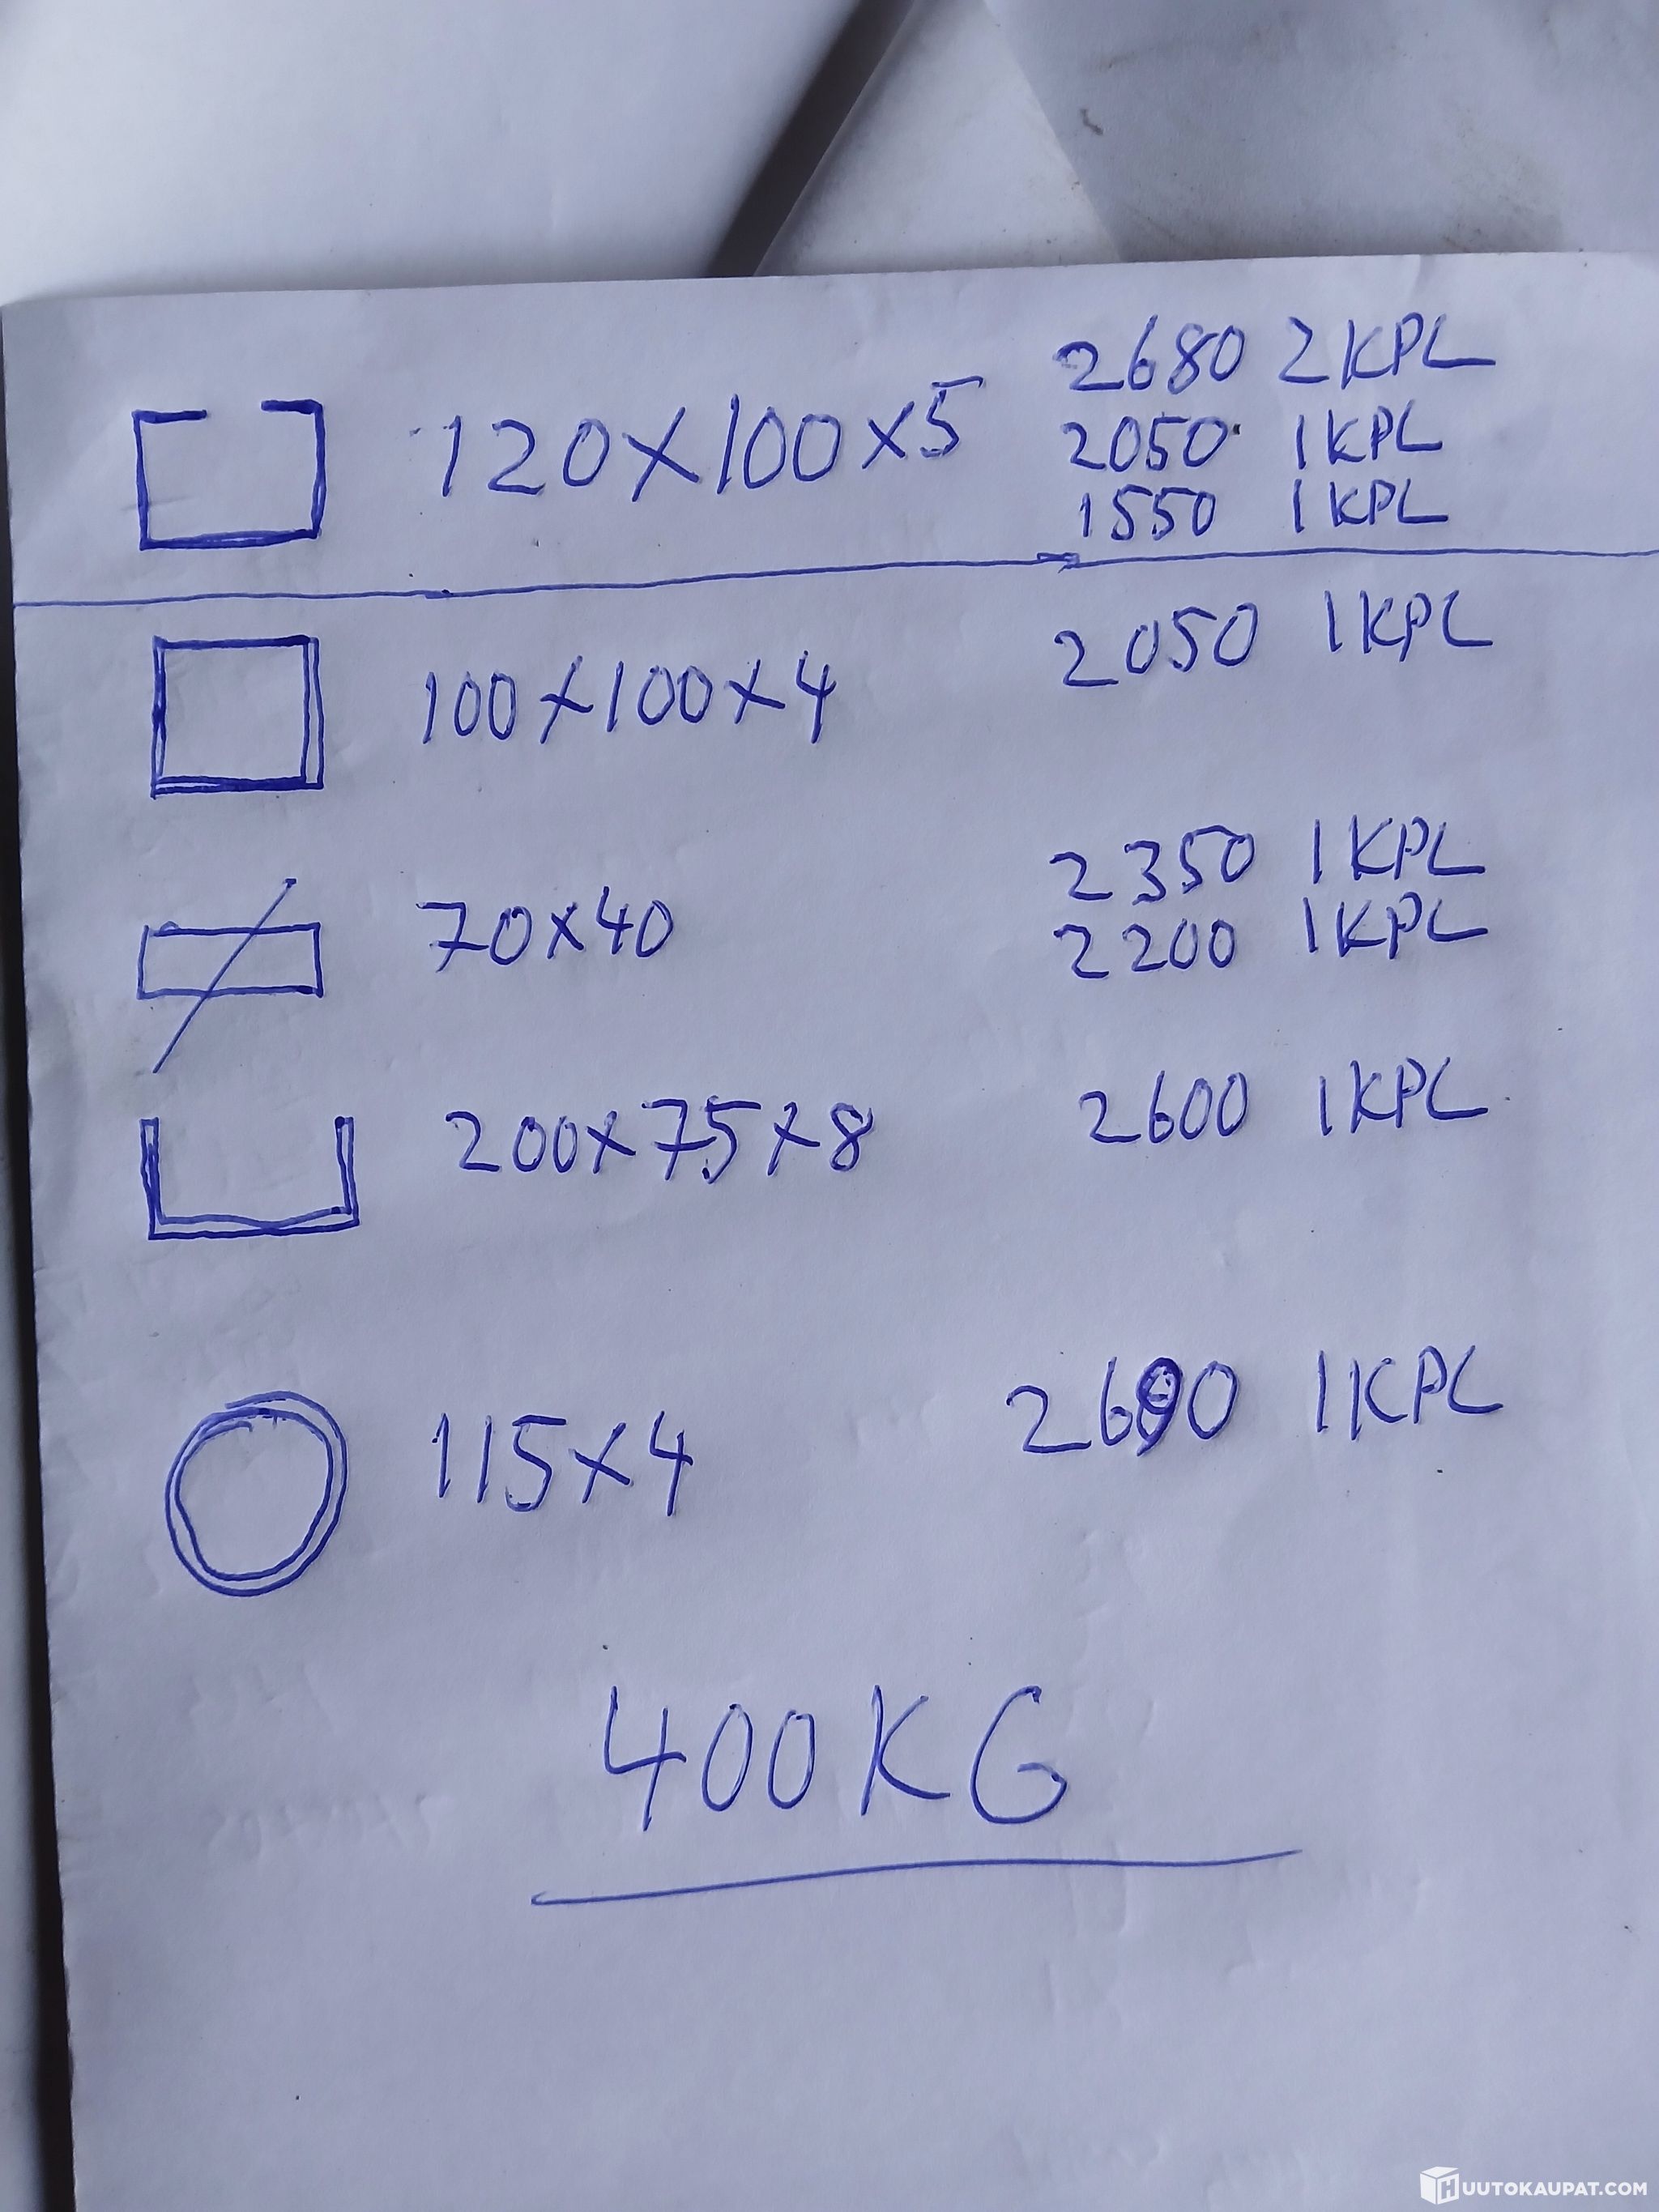 120x100x5 2680 2KPL
2050 1KPL
1550 1KPL
100x100x4 2050 1KPL
70x40 2350 1KPL
2200 1KPL
200x75x8 2600 1KPL
115x4 2690 1KPL
400KG
HUUTOKAUPAT.COM